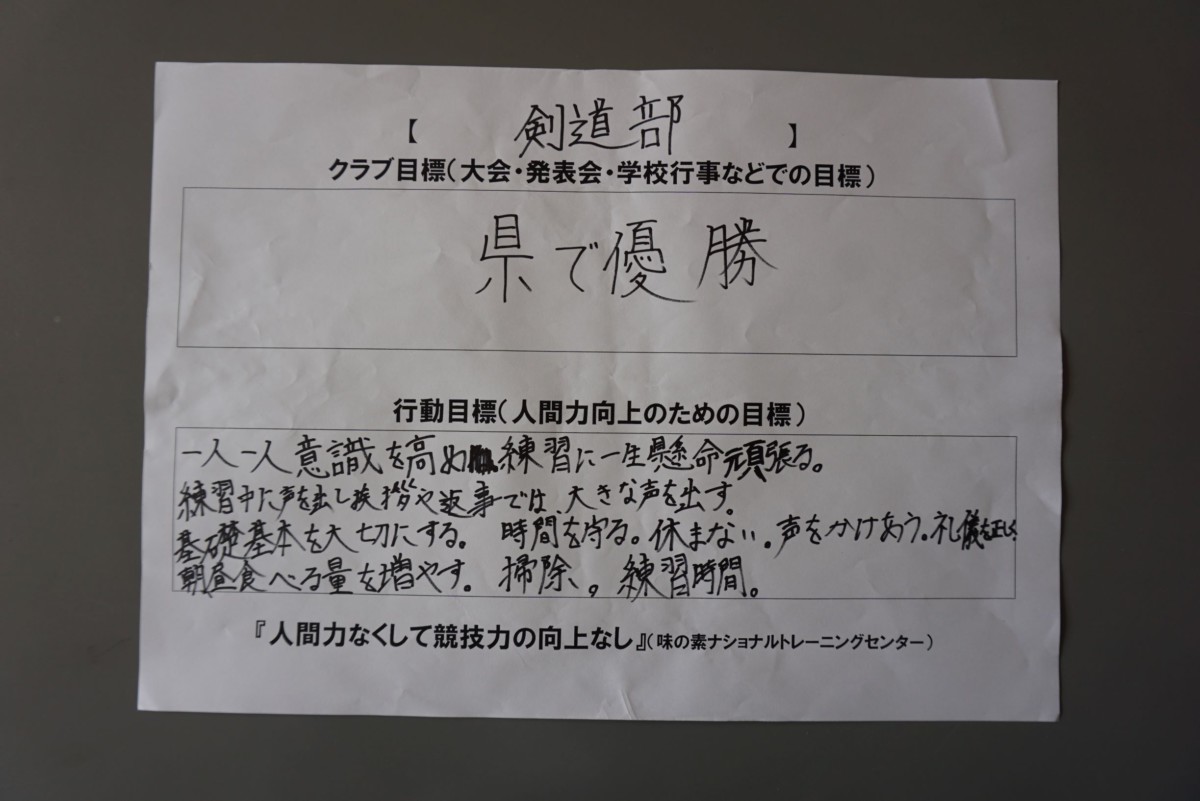 【 剣道部 】
クラブ目標(大会・発表会・学校行事などでの目標)
県で優勝
行動目標(人間力向上のための目標)
一人一人意識を高め練習に一生懸命頑張る。
練習中に声を出し挨拶や返事では、大きな声を出す。
基礎基本を大切にする。 時間を守る。休まない。声をかけあう。礼儀を正しく
朝昼食べる量を増やす。 掃除。練習時間。
『人間力なくして競技力の向上なし』(味の素ナショナルトレーニングセンター)